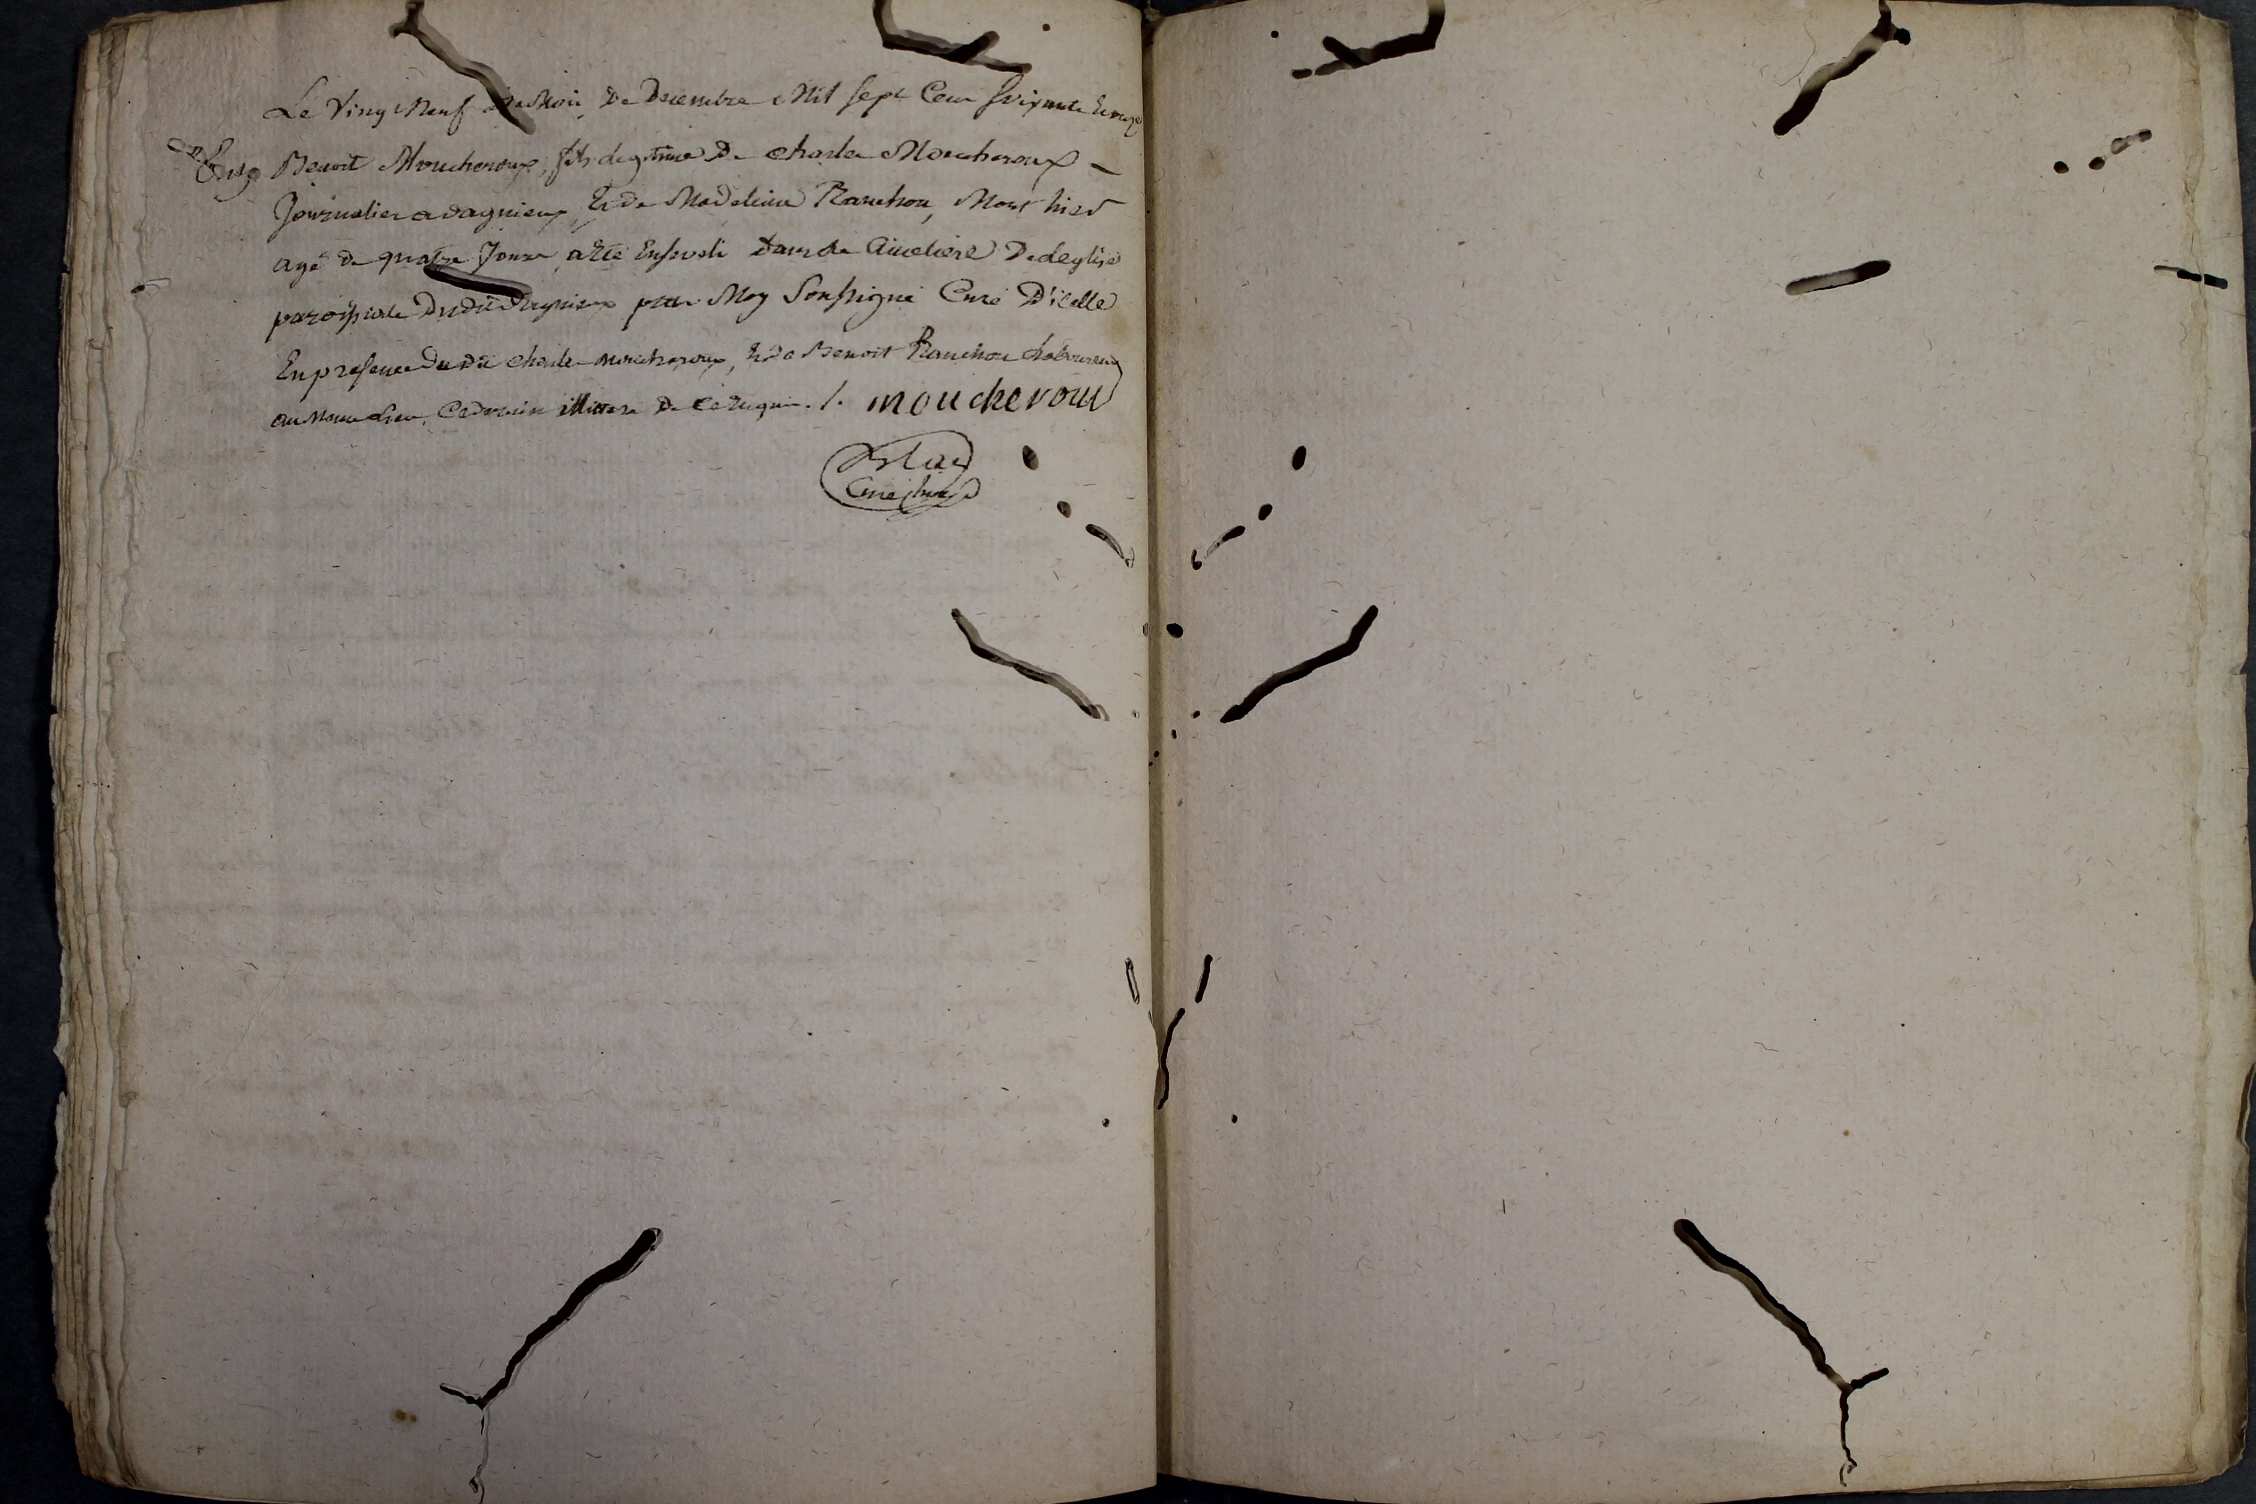 Le Vingt Neuf du Mois De Decembre Mil sept Cent soixante
Benoit Moucheroux, fils legitime De charles Moucheroux
Journalier a dagnieux, Et de Madeleine Ranchon, Mort hier
agé de quatre Jours a Eté Enseveli Dans le Cimetiere De leglise
paroissiale Du dit Dagnieux par Moy Soussigné Curé D'icelle
En presence Du dit charles moucheroux, Et De Benoit Ranchon Laboureur
au Meme Lieu, Ce dernier illitere De Ce Requis ./. moucheroux
Curé